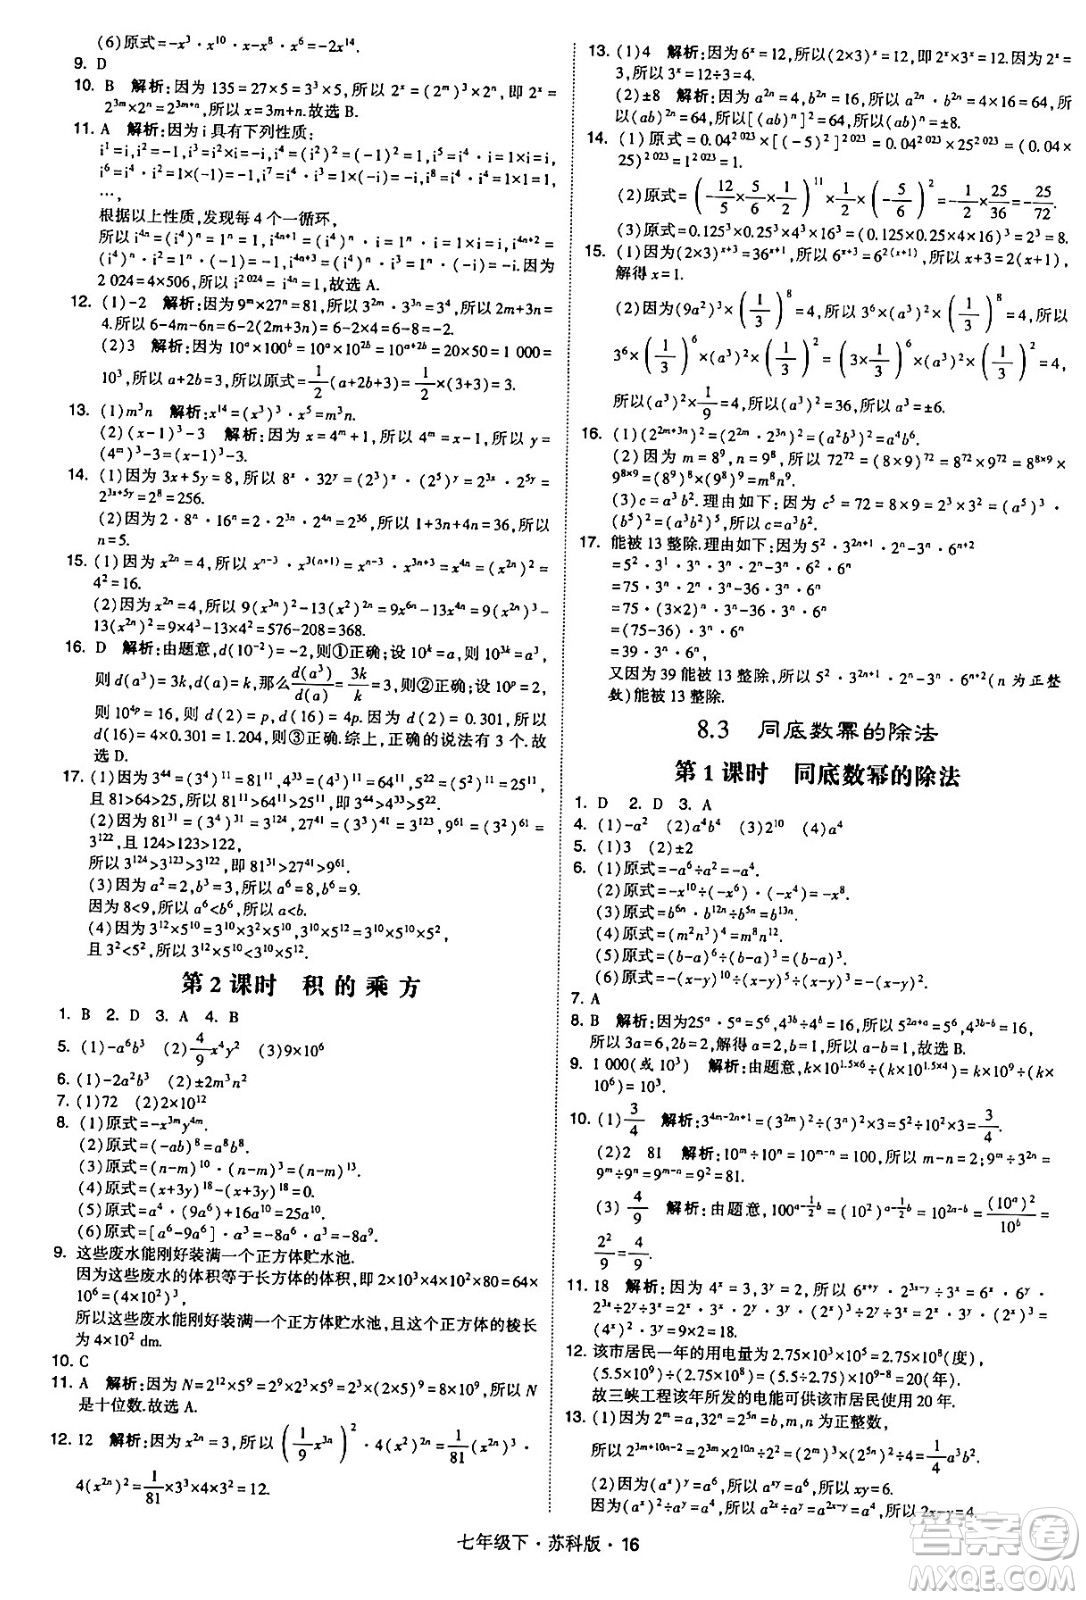 (6)原式=-x³·x¹⁰-x·x⁸·x⁵=-2x¹⁴.
9. D
10. B 解析:因为 135=27×5=3³×5,所以 2ˣ=(2ᵐ)³×2ⁿ,即 2ˣ=
2³ᵐ×2ⁿ=2³ᵐ⁺ⁿ,所以 x=3m+n.故选 B.
11. A 解析:因为 i 具有下列性质:
i¹=i,i²=-1,i³=i²×i=-i,i⁴=(i²)²=(-1)²=1,i⁵=i⁴×i=i,
i⁶=i⁴·i²=1×(-1)=-1,i⁷=i⁶×i=-i,i⁸=(i⁴)²=1,
…,
根据以上性质,发现每 4 个一循环,
所以 i⁴ⁿ=(i⁴)ⁿ=1ⁿ=1,i⁴ⁿ⁺¹=(i⁴)ⁿ·i=1ⁿ·i=i,i⁴ⁿ⁺²=
(i⁴)ⁿ·i²=1ⁿ·i²=-1,i⁴ⁿ⁺³=(i⁴)ⁿ·i³=1ⁿ·(-i)=-i.因为
2 024=4×506,所以 i²⁰²⁴=1.故选 A.
12. (1)-2 解析:因为 9ᵐ×27ⁿ=81,所以 3²ᵐ·3³ⁿ=3⁴,所以 2m+3n=
4.所以 6-4m-6n=6-2(2m+3n)=6-8=-2.
(2)3 解析:因为 10ᵃ×100ᵇ=10ᵃ×10²ᵇ=10ᵃ⁺²ᵇ=20×50=1 000=
10³,所以 a+2b=3,所以原式=1/2(a+2b+3)=1/2×(3+3)=3.
13. (1)m³n 解析:x¹⁴=(x³)³·x⁵=m³n.
(2)(x-1)³-3 解析:因为 x=4ᵐ+1,所以 4ᵐ=x-1,所以 y=
(4ᵐ)³-3=(x-1)³-3.
14. (1)因为 3x+5y=8,所以 8ˣ·32ʸ=(2³)ˣ·(2⁵)ʸ=2³ˣ·2⁵ʸ=
2³ˣ⁺⁵ʸ=2⁸=256.
(2)因为 2·8ⁿ·16ⁿ=2·2³ⁿ·2⁴ⁿ=2³⁶,所以 1+3n+4n=36,所以
n=5.
15. (1)因为 x²ⁿ=4,所以 xⁿ⁻³·x³⁽ⁿ⁺¹⁾=xⁿ⁻³·x³ⁿ⁺³=x⁴ⁿ=(x²ⁿ)²=
4²=16.
(2)因为 x²ⁿ=4,所以 9(x³ⁿ)²-13(x²)²ⁿ=9x⁶ⁿ-13x⁴ⁿ=9(x²ⁿ)³-
13(x²ⁿ)²=9×4³-13×4²=576-208=368.
16. D 解析:由题意,d(10⁻²)=-2,则①正确;设 10ᵏ=a,则 10³ᵏ=a³,
则 d(a³)=3k,d(a)=k,那么d(a³)/d(a)=3k/k=3,则②正确;设 10ᵖ=2,
则 10⁴ᵖ=16,则 d(2)=p,d(16)=4p.因为 d(2)=0.301,所以
d(16)=4×0.301=1.204,则③正确.综上,正确的说法有 3 个.故
选 D.
17. (1)因为 3⁴⁴=(3⁴)¹¹=81¹¹,4³³=(4³)¹¹=64¹¹,5²²=(5²)¹¹=25¹¹,
且 81>64>25,所以 81¹¹>64¹¹>25¹¹,即 3⁴⁴>4³³>5²².
(2)因为 81³¹=(3⁴)³¹=3¹²⁴,27⁴¹=(3³)⁴¹=3¹²³,9⁶¹=(3²)⁶¹=
3¹²²,且 124>123>122,
所以 3¹²⁴>3¹²³>3¹²²,所以 81³¹>27⁴¹>9⁶¹.
(3)因为 a²=2,b³=3,所以 a⁶=8,b⁶=9.
因为 8<9,所以 a⁶<b⁶,所以 a<b.
(4)因为 3¹²×5¹⁰=3¹⁰×3²×5¹⁰,3¹⁰×5¹²=3¹⁰×5¹⁰×5²,
且 3²<5²,所以 3¹²×5¹⁰<3¹⁰×5¹².
第 2 课时 积的乘方
1. B 2. D 3. A 4. B
5. (1)-a⁶b³ (2)4/9x⁴y² (3)9×10⁶
6. (1)-2a²b³ (2)±2m³n²
7. (1)72 (2)2×10¹²
8. (1)原式=-x³ᵐy⁴ᵐ.
(2)原式=(-ab)⁸=a⁸b⁸.
(3)原式=(n-m)¹⁰·(n-m)⁵=(n-m)¹⁵.
(4)原式=(x+3y)¹⁸-(x+3y)¹⁸=0.
(5)原式=a⁴·(9a⁶)+16a¹⁰=25a¹⁰.
(6)原式=[a⁶-9a⁶]·a³=-8a⁶·a³=-8a⁹.
9. 这些废水能刚好装满一个正方体贮水池.
因为这些废水的体积等于长方体的体积,即 2×10³×4×500=64×
10⁶=(4×10²)³,
所以这些废水能刚好装满一个正方体贮水池,且这个正方体的棱长
为 4×10² dm.
10. C
11. A 解析:因为 N=2¹²×5⁹=2³×2⁹×5⁹=2³×(2×5)⁹=8×10⁹,所以 N
是十位数.故选 A.
12. 12 解析:因为 x²ⁿ=3,所以(1/9x³ⁿ)²·4(x²)²ⁿ=1/81(x²ⁿ)³·
4(x²ⁿ)²=1/81×3³×4×3²=12.
13. (1)4 解析:因为 6ˣ=12,所以(2×3)ˣ=12,即 2ˣ×3ˣ=12.因为 2ˣ=
3,所以 3ˣ=12÷3=4.
(2)±8 解析:因为 a²ⁿ=4,b²ⁿ=16,所以 a²ⁿ×b²ⁿ=4×16=64,所以
(ab)²ⁿ=64,所以[(ab)ⁿ]²=64,所以(ab)ⁿ=±8.
14. (1)原式=0.04²⁰²³×[(-5)²]²⁰²³=0.04²⁰²³×25²⁰²³=(0.04×
25)²⁰²³=1²⁰²³=1.
(2)原式=(-12/5×5/6×1/2)¹¹×(-5/6)²=-1/2×25/36=-25/72.
(3)原式=0.125³×0.25³×4³×16³=(0.125×0.25×4×16)³=2³=8.
15. (1)因为(2×3)ˣ⁺³=36ˣ⁺¹,所以 6ˣ⁺³=6²⁽ˣ⁺¹⁾,所以 x+3=2(x+1),
解得 x=1.
(2)因为(9a²)³×(1/3)⁸=4,所以 9³×(a²)³×(1/3)⁸=4,所以
3⁶×(1/3)⁶×(a³)²×(1/3)²=(3×1/3)⁶×(a³)²×(1/3)²=4,
所以(a³)²×1/9=4,所以(a³)²=36,所以 a³=±6.
16. (1)(2²ᵐ⁺³ⁿ·2³ⁿ)²=(2²ᵐ·2³ⁿ·2³ⁿ)²=(a²b²)²=a⁴b⁶.
(2)因为 m=8⁹,n=9⁸,所以 72⁷²=(8×9)⁷²=8⁷²×9⁷²=8⁸ˣ⁹×
9⁸ˣ⁹=(8⁹)⁸×(9⁸)⁹=m⁸n⁹.
(3)c=a³b².理由如下:因为 c⁵=72=8×9=2³×3²=(a⁵)³·
(b⁵)²=(a³b²)⁵,所以 c=a³b².
17. 能被 13 整除.理由如下:因为 5²·3²ⁿ⁺¹·2ⁿ-3ⁿ·6ⁿ⁺²
=5²·3¹·3²ⁿ·2ⁿ-3ⁿ·6²·6ⁿ
=75·3²ⁿ·2ⁿ-36·3ⁿ·6ⁿ
=75·(3×2)ⁿ·3ⁿ-36·3ⁿ·6ⁿ
=(75-36)·3ⁿ·6ⁿ
=39·3ⁿ·6ⁿ,
又因为 39 能被 13 整除,所以 5²·3²ⁿ⁺¹·2ⁿ-3ⁿ·6ⁿ⁺²(n 为正整
数)能被 13 整除.
8.3 同底数幂的除法
第 1 课时 同底数幂的除法
1. D 2. D 3. A
4. (1)-a² (2)a⁴b⁴ (3)2¹⁰ (4)a⁴
5. (1)3 (2)±2
6. (1)原式=-a⁶÷a²=-a⁴.
(2)原式=-x¹⁰÷(-x⁶)·(-x⁴)=-x⁸.
(3)原式=b⁶ⁿ·b¹²ⁿ÷b⁵ⁿ=b¹³ⁿ.
(4)原式=(m²n³)⁴=m⁸n¹².
(5)原式=(b-a)³÷(b-a)²=b-a.
(6)原式=-(x-y)¹⁰÷(x-y)⁹=-(x-y)=-x+y.
7. A
8. B 解析:因为25ᵃ·5ᵃ=5⁶,4³ᵇ÷4ᵇ=16,所以 5²ᵃ⁺ᵃ=5⁶,4³ᵇ⁻ᵇ=16,
所以 3a=6,2b=2,解得 a=2,b=1,所以 a²+b=5.故选 B.
9. 1 000(或 10³) 解析:由题意,得(k×10¹·⁵ˣ⁶)÷(k×10¹·⁵ˣ⁴)=k×10⁹÷(k×
10⁶)=10³.
10. (1)3/4 解析:3⁴ᵐ⁻²ⁿ⁺¹=(3²ᵐ)²÷3²ⁿ×3=(9ᵐ)²÷9ⁿ×3=3/4.
(2)2 81 解析:因为 10ᵐ÷10ⁿ=10ᵐ⁻ⁿ=10²,所以 m-n=2;9ᵐ÷
9ⁿ=9ᵐ⁻ⁿ=9²=81.
(3)4/9 解析:100^(a-1/2b)=(10²)^(a-1/2b)=10²ᵃ⁻ᵇ=(10ᵃ)²/10ᵇ=
2²/9=4/9.
11. 18 解析:因为 4ˣ=3,3ʸ=2,所以 6ˣ⁺ʸ·2³ˣ⁻ʸ÷3ˣ=6ˣ·6ʸ·
2³ˣ÷2ʸ÷3ˣ=(6ˣ÷3ˣ)·(6ʸ÷2ʸ)·2³ˣ=2ˣ·3ʸ·2³ˣ=2⁴ˣ·3ʸ=
(4ˣ)²·3ʸ=9×2=18.
12. 该市居民一年的用电量为 2.75×10³×10⁵=2.75×10⁸(度),
(5.5×10⁹)÷(2.75×10⁸)=(5.5÷2.75)×(10⁹÷10⁸)=20(年).
故三峡工程该年所发的电能可供该市居民使用 20 年.
13. (1)因为 2ᵐ=a,32ⁿ=2⁵ⁿ=b,m,n 为正整数,
所以 2³ᵐ⁺¹⁰ⁿ⁻²=2³ᵐ×2¹⁰ⁿ÷2²=(2ᵐ)³×(2⁵ⁿ)²÷4=1/4a³b².
(2)因为(aˣ)ʸ=a⁶,所以 aˣʸ=a⁶,所以 xy=6.
因为(aˣ)²÷aʸ=a⁴,所以 a²ˣ÷aʸ=a²ˣ⁻ʸ=a⁴,所以 2x-y=4.
七年级下·苏科版·16
答案圈
MXQE.COM